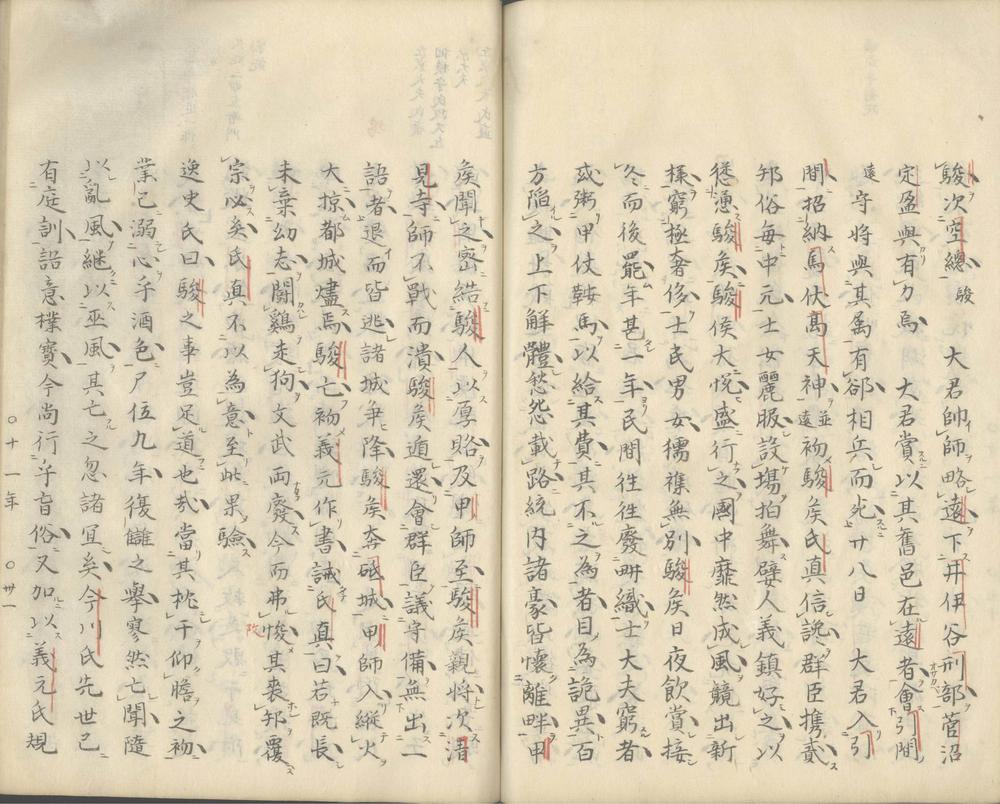 駿次空總駿 大君帥師略遠下井伊谷刑部菅沼
定盈與有力焉 大君賞以其舊邑在遠者會引間
遠守將與其屬有郤相兵而死廿八日 大君入引
間招納馬伏髙天神並遠初駿矦氏真信讒群臣攜貳
知俗每中元士女麗服設場拍舞嬖人義鎮好之以
慫慂駿矦駿侯大悅盛行之國中靡然成風競出新
樣窮極奢侈士民男女襦襍無別駿矦日夜飲賞接
冬而後罷年甚一年民間徃徃廢畊織士大夫窮者
或粥甲仗鞍馬以給其費其不之為者目為詭異百
方陷之上下解體愁怨載路統内諸豪皆懷離畔甲
矦聞之密結駿人以厚賂及甲師至駿矦親將次清
見寺師不戰而潰駿矦遁還會群臣議守備無出一
語者退而皆逃諸城爭降駿矦奔砥城甲師入縱火
大掠都城燼焉駿亡初義元作書誡氏真曰若既長
未棄幼志鬪鷄走狗文武両廢今而弗悛其喪知覆
改
宗必矣氏真不以為意至此果驗
逸史氏曰駿之事豈足道也㢤當其枕干仰膽之初
業已溺心乎酒色尸位九年復讎之舉寥然亡聞隨
以亂風継以巫風其亡之忽諸冝矣今川氏先世已
有庭訓語意樸實今尚行乎盲俗又加以義元氏規
〇十一年 〇卅一